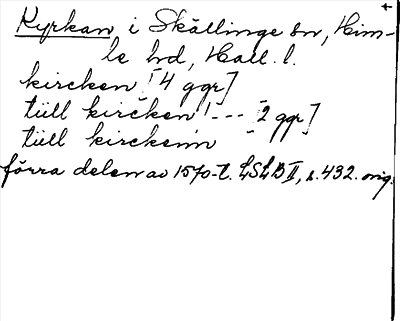 Kyrkan i Skällinge sn, Him-
le hd, Hall. l.
kircken [4 ggr]
tüll kircken! --- [2 ggr]
tüll kirckenn
förra delen av 1570-t. LSLB II, s. 432. orig.